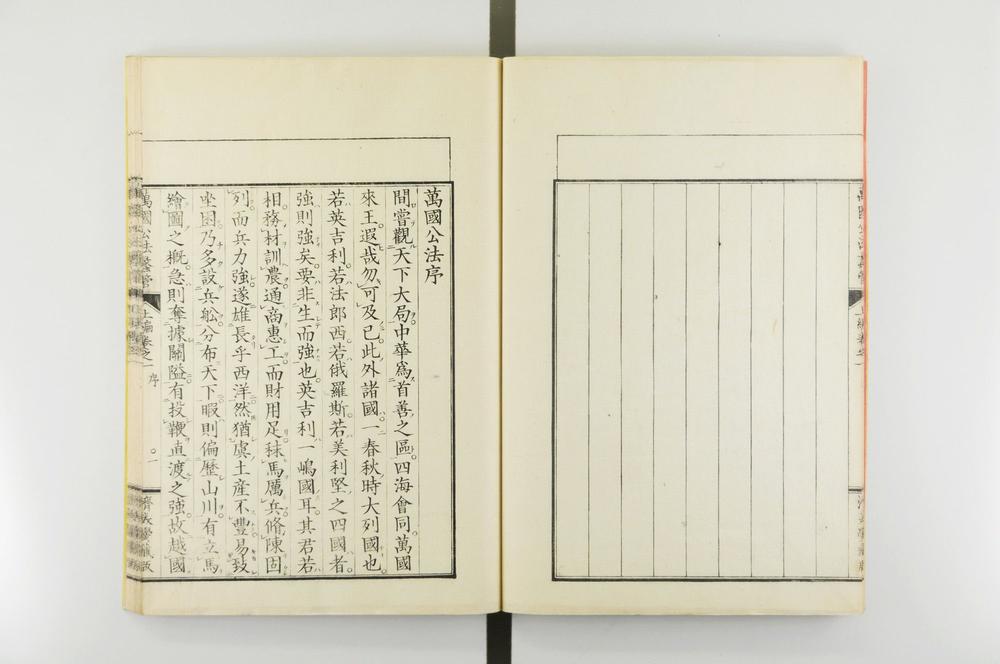 萬國公法序
間嘗觀天下大局中華爲首善之區四海會同萬國
來王遐哉勿可及已此外諸國一春秋時大列國也
若英吉利若法郎西若俄羅斯若美利堅之四國者
強則強矣要非生而強也英吉利一嶋國耳其君若
相務材訓農通商惠工而財用足秣馬厲兵脩陳固
列而兵力強遂雄長乎西洋然猶虞土産不豐易致
坐困乃多設兵舩分布天下暇則偏歷山川有立馬
繪圖之概急則奪據關隘有投鞭直渡之強故越國
萬國公法蠡管
上編卷之一
序
一